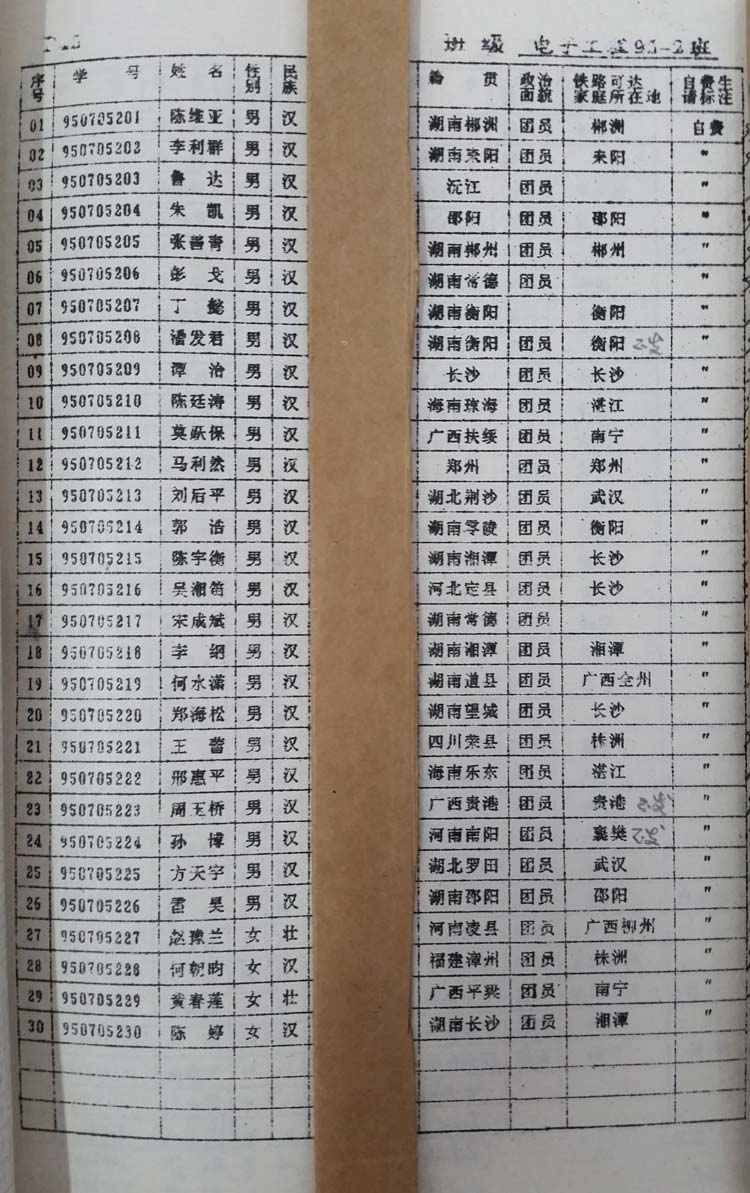 班级 电子工程95-2班
序号 学号 姓名 性别 民族 籍贯 政治面貌 铁路可达家庭所在地 自费生请标注
01 950705201 陈维亚 男 汉 湖南郴洲 团员 郴洲 自费
02 950705202 李利群 男 汉 湖南耒阳 团员 耒阳 〃
03 950705203 鲁达 男 汉 沅江 团员 〃
04 950705204 朱凯 男 汉 邵阳 团员 邵阳 〃
05 950705205 张善青 男 汉 湖南郴州 团员 郴州 〃
06 950705206 彭戈 男 汉 湖南常德 团员 〃
07 950705207 丁懿 男 汉 湖南衡阳 衡阳 〃
08 950705208 潘发君 男 汉 湖南衡阳 团员 衡阳 〃
09 950705209 谭治 男 汉 长沙 团员 长沙 〃
10 950705210 陈廷涛 男 汉 海南琼海 团员 湛江 〃
11 950705211 莫跃保 男 汉 广西扶绥 团员 南宁 〃
12 950705212 马利然 男 汉 郑州 团员 郑州 〃
13 950705213 刘后平 男 汉 湖北荆沙 团员 武汉 〃
14 950705214 郭浩 男 汉 湖南零陵 团员 衡阳 〃
15 950705215 陈宇衡 男 汉 湖南湘潭 团员 长沙 〃
16 950705216 吴湘笛 男 汉 河北定县 团员 长沙 〃
17 950705217 宋成斌 男 汉 湖南常德 团员 〃
18 950705218 李纲 男 汉 湖南湘潭 团员 湘潭 〃
19 950705219 何水潇 男 汉 湖南道县 团员 广西全州 〃
20 950705220 郑海松 男 汉 湖南望城 团员 长沙 〃
21 950705221 王蕾 男 汉 四川荣县 团员 株洲 〃
22 950705222 邢惠平 男 汉 海南乐东 团员 湛江 〃
23 950705223 周玉桥 男 汉 广西贵港 团员 贵港 〃
24 950705224 孙博 男 汉 河南南阳 团员 襄樊 〃
25 950705225 方天宇 男 汉 湖北罗田 团员 武汉 〃
26 950705226 雷昊 男 汉 湖南邵阳 团员 邵阳 〃
27 950705227 赵豫兰 女 壮 河南凌县 团员 广西柳州 〃
28 950705228 何朝昀 女 汉 福建漳州 团员 株洲 〃
29 950705229 黄春莲 女 壮 广西平果 团员 南宁 〃
30 950705230 陈婷 女 汉 湖南长沙 团员 湘潭 〃